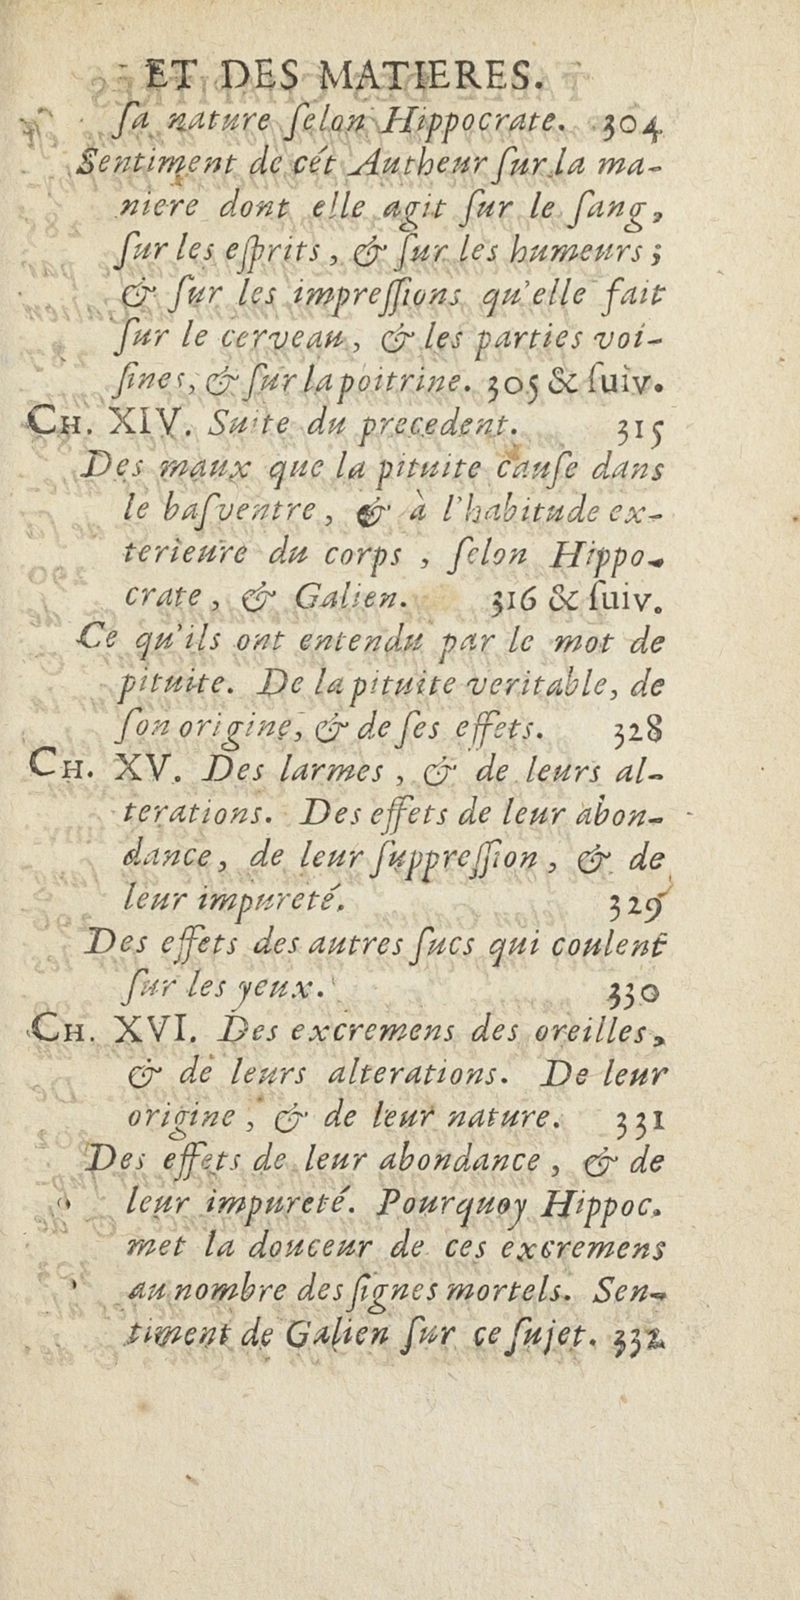 ET DES MATIERES.
ſa nature ſelon Hippocrate. 304
Sentiment de cét Autheur ſur la ma-
niere dont elle agit ſur le ſang,
ſur les eſprits, & ſur les humeurs;
& ſur les impreſſions qu'elle fait
ſur le cerveau, & les parties voi-
ſines, & ſur la poitrine. 305 & ſuiv.
CH. XIV. Suite du precedent. 315
Des maux que la pituite cauſe dans
le baſventre, & à l'habitude ex-
terieure du corps, ſelon Hippo-
crate, & Galien. 316 & ſuiv.
Ce qu'ils ont entendu par le mot de
pituite. De la pituite veritable, de
ſon origine, & de ſes effets. 328
CH. XV. Des larmes, & de leurs al-
terations. Des effets de leur abon-
dance, de leur ſuppreſſion, & de
leur impureté. 329
Des effets des autres ſucs qui coulent
ſur les yeux. 330
CH. XVI. Des excremens des oreilles,
& de leurs alterations. De leur
origine, & de leur nature. 331
Des effets de leur abondance, & de
leur impureté. Pourquoy Hippoc.
met la douceur de ces excremens
au nombre des ſignes mortels. Sen-
timent de Galien ſur ce ſujet. 332